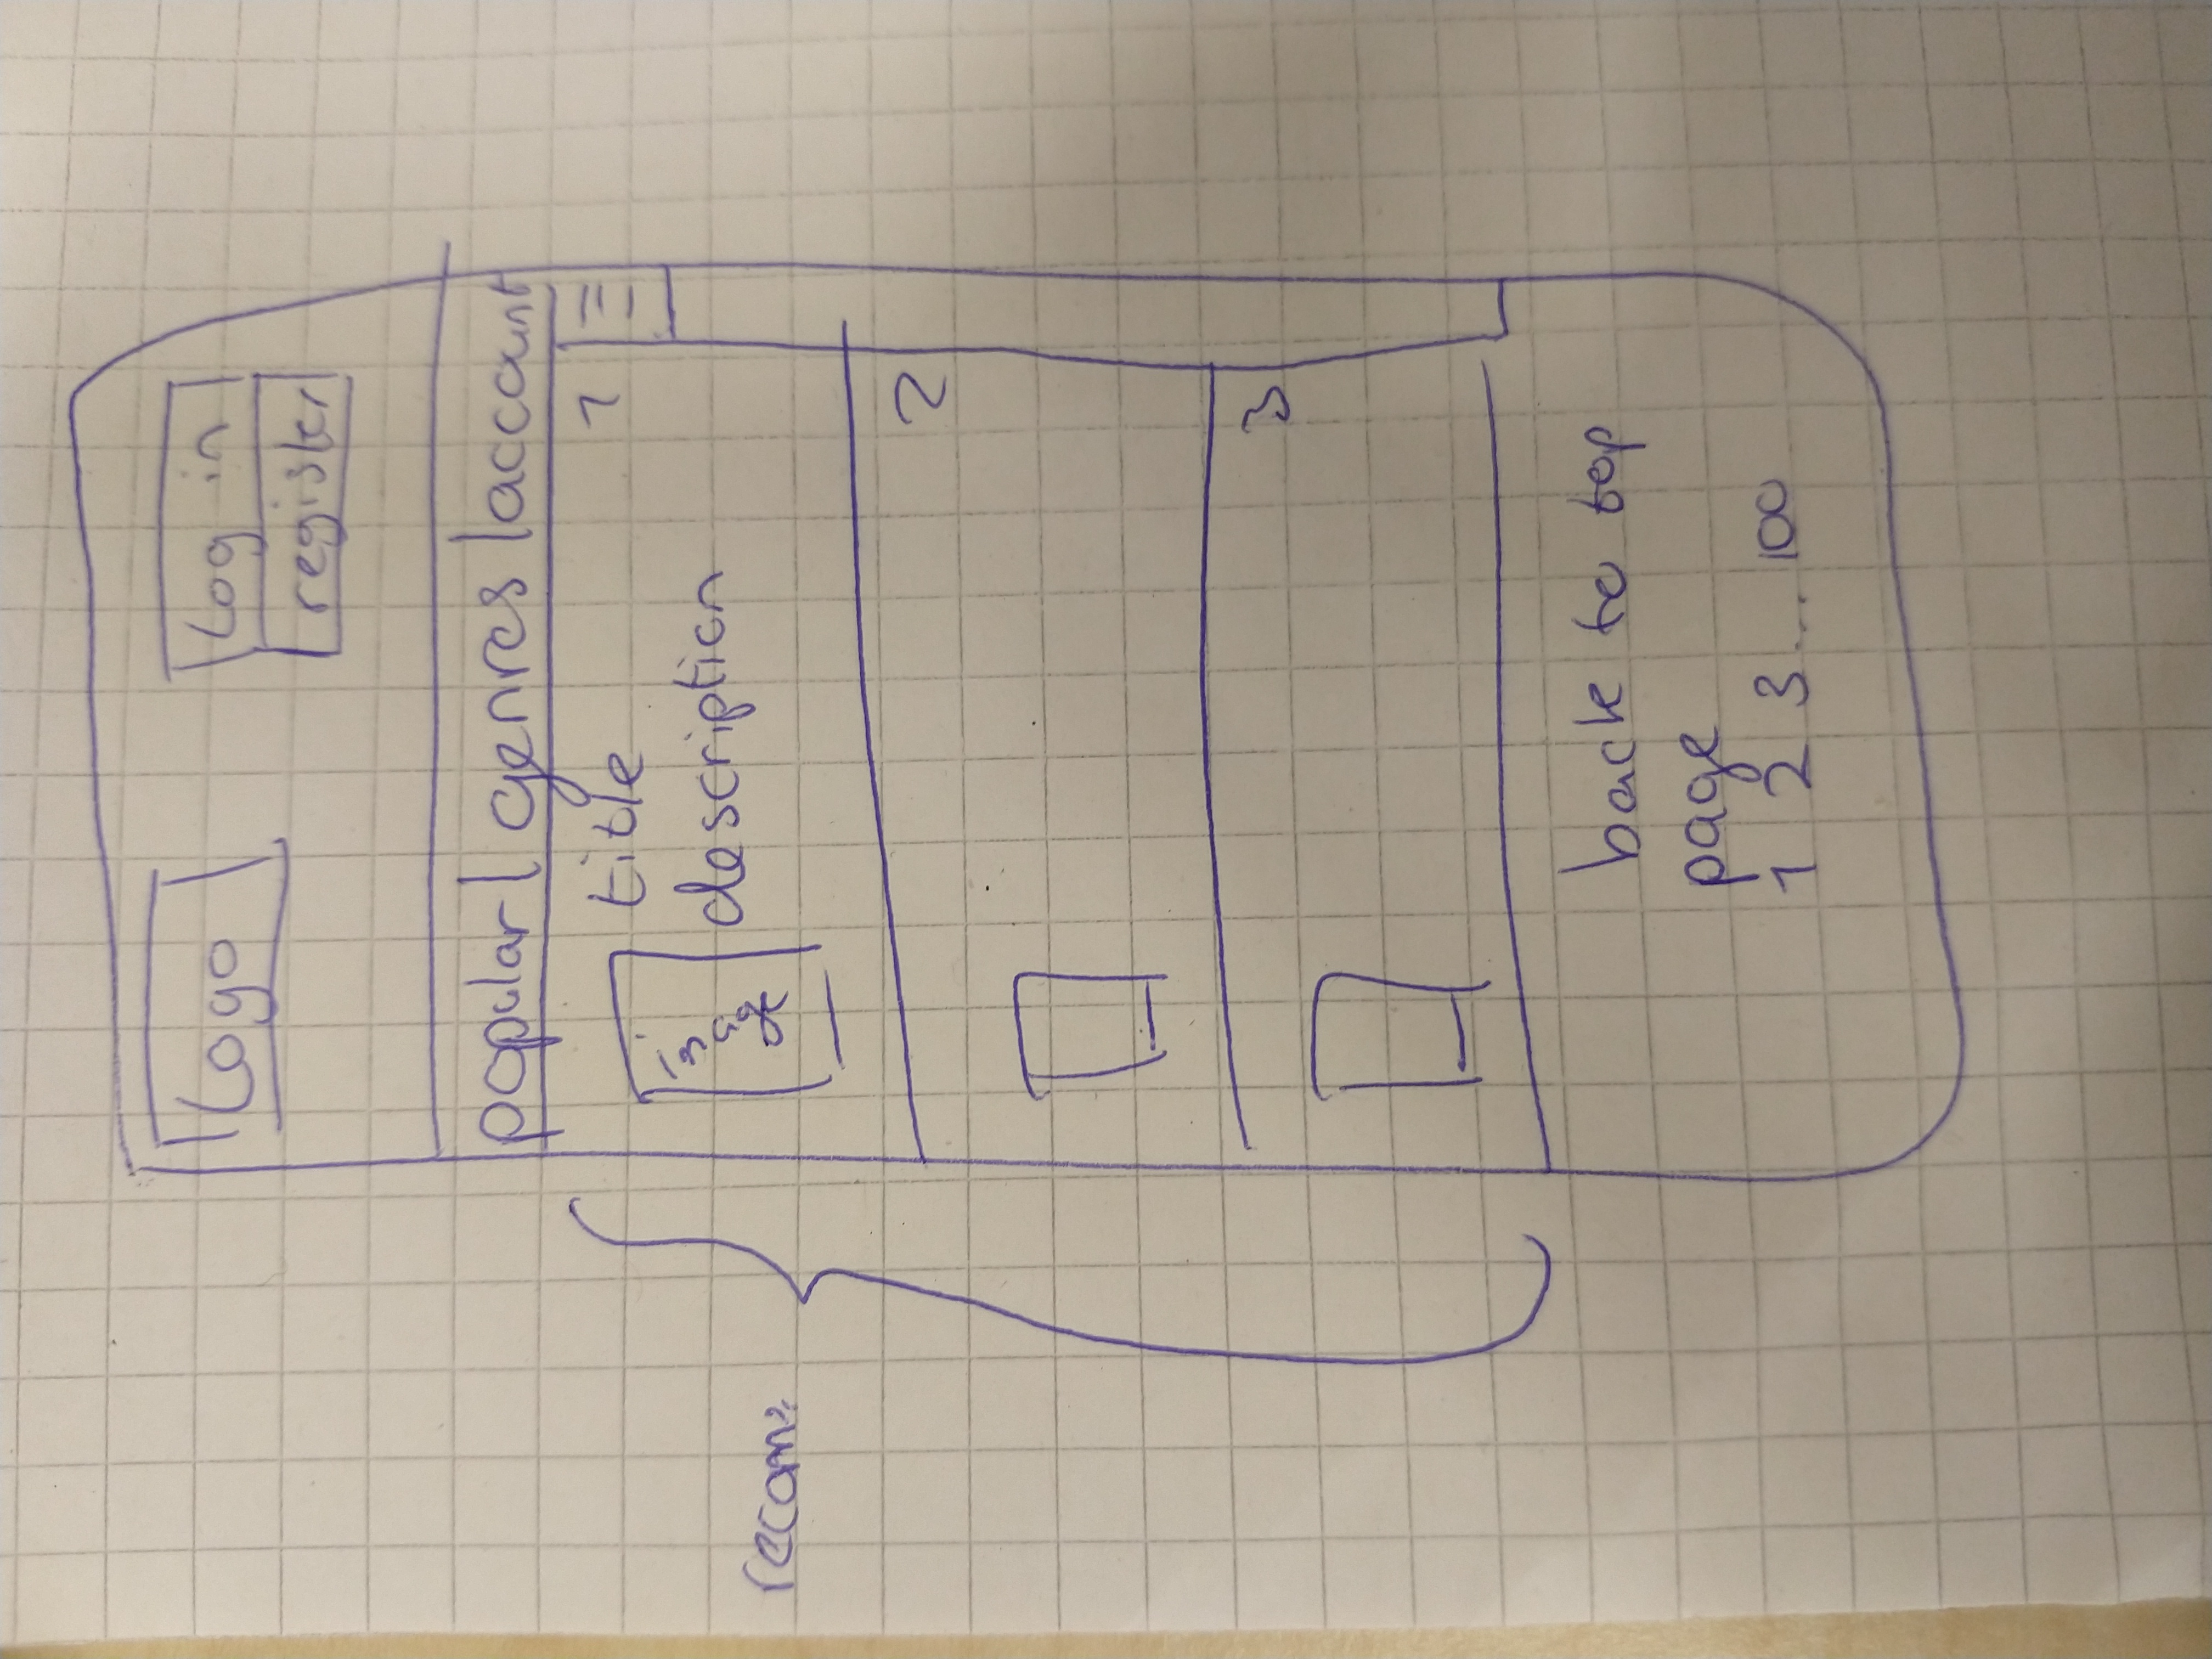 Logo
Log in
register
popular | genres | account
title
1
image
description
recom:
2
3
back to top
page
1 2 3... 100